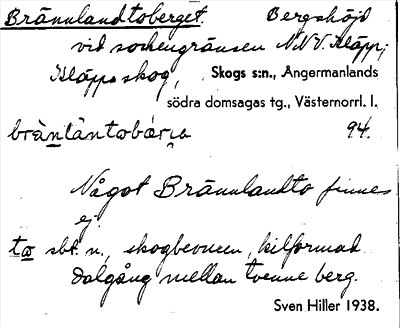 Brännlandtoberget. Bergshöjd
vid sockengränsen N.N.V. Kläpp;
Kläpps skog, Skogs s:n., Ångermanlands
södra domsagas tg., Västernorrl. l.
bränlàntobärja 94.
Något Brännlandto finnes
ej.
to sbt. n., skogbevuxen, kilformad
dalgång mellan tvenne berg.
Sven Hiller 1938.